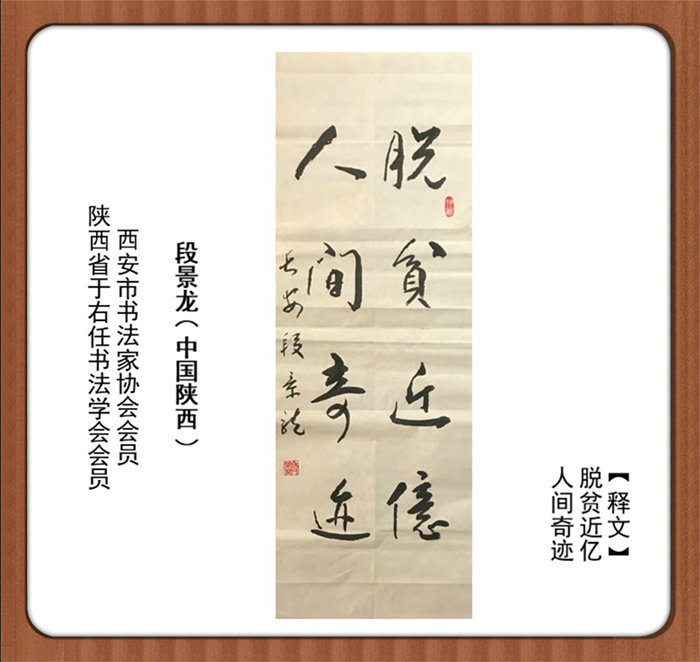 【释文】
脱贫近亿
人间奇迹
脱贫近億
人间奇迹
长安段景龙
段景龙（中国陕西）
西安市书法家协会会员
陕西省于右任书法学会会员